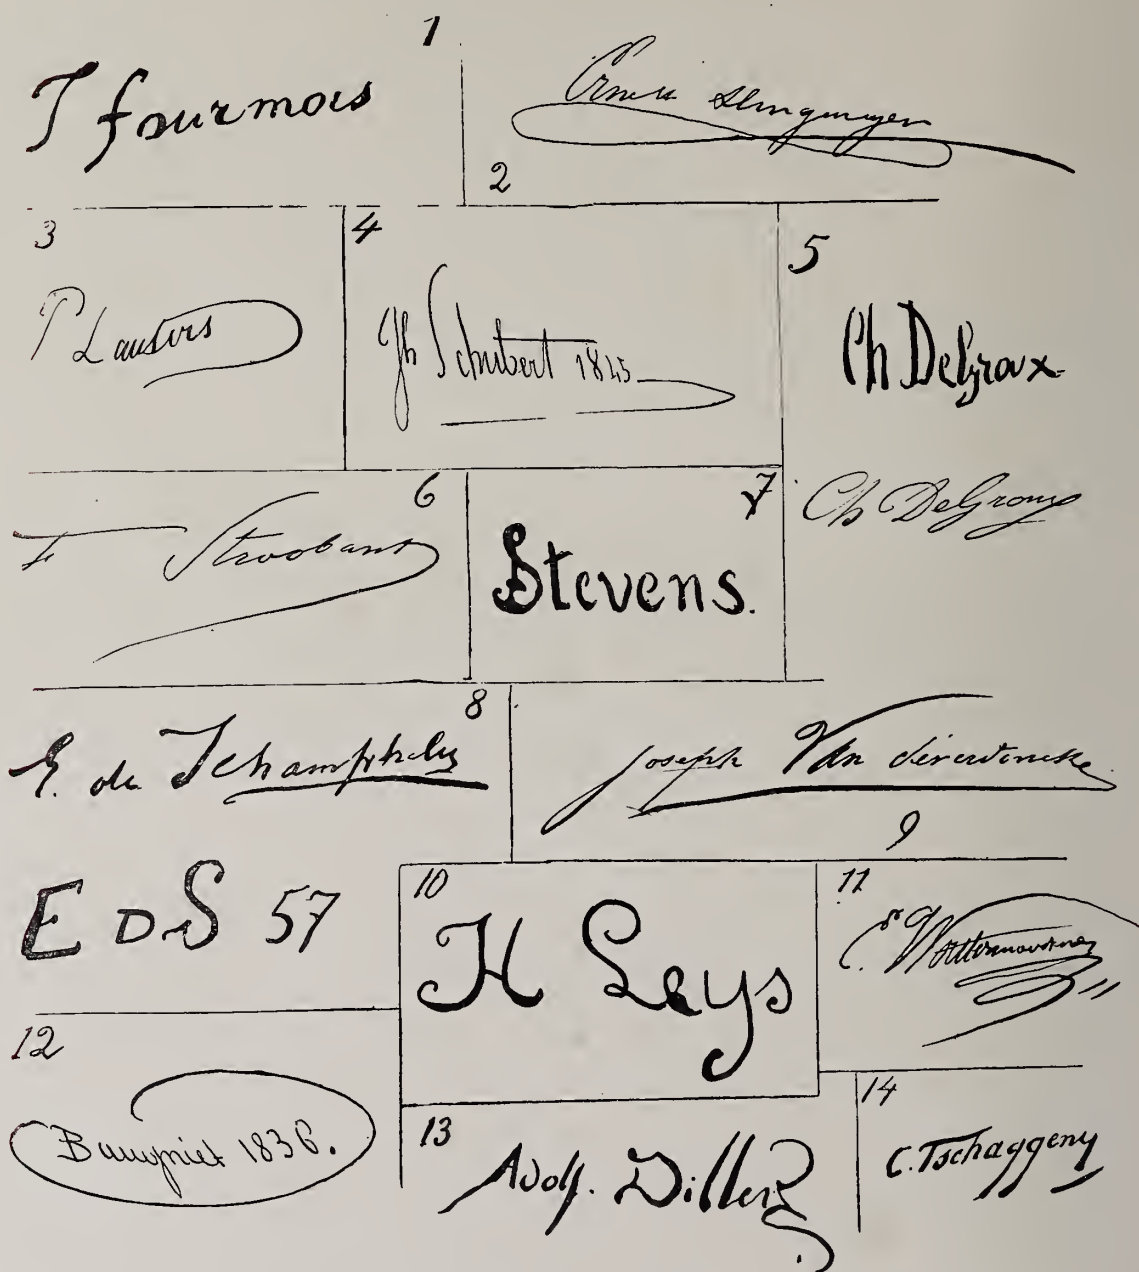 1
T fourmois
Ernest Slingeneyer
2
3
4
5
P Lauters
Jh Schubert 1845
Ch DeGroux
6
7
Ch DeGroux
F Stroobant
Stevens.
8
E. de Schampheler
Joseph Van Severdonck
9
E D S 57
10
H Leys
11
E.
12
Baugniet 1836.
13
Adolf. Dillens
14
C. Tschaggeny